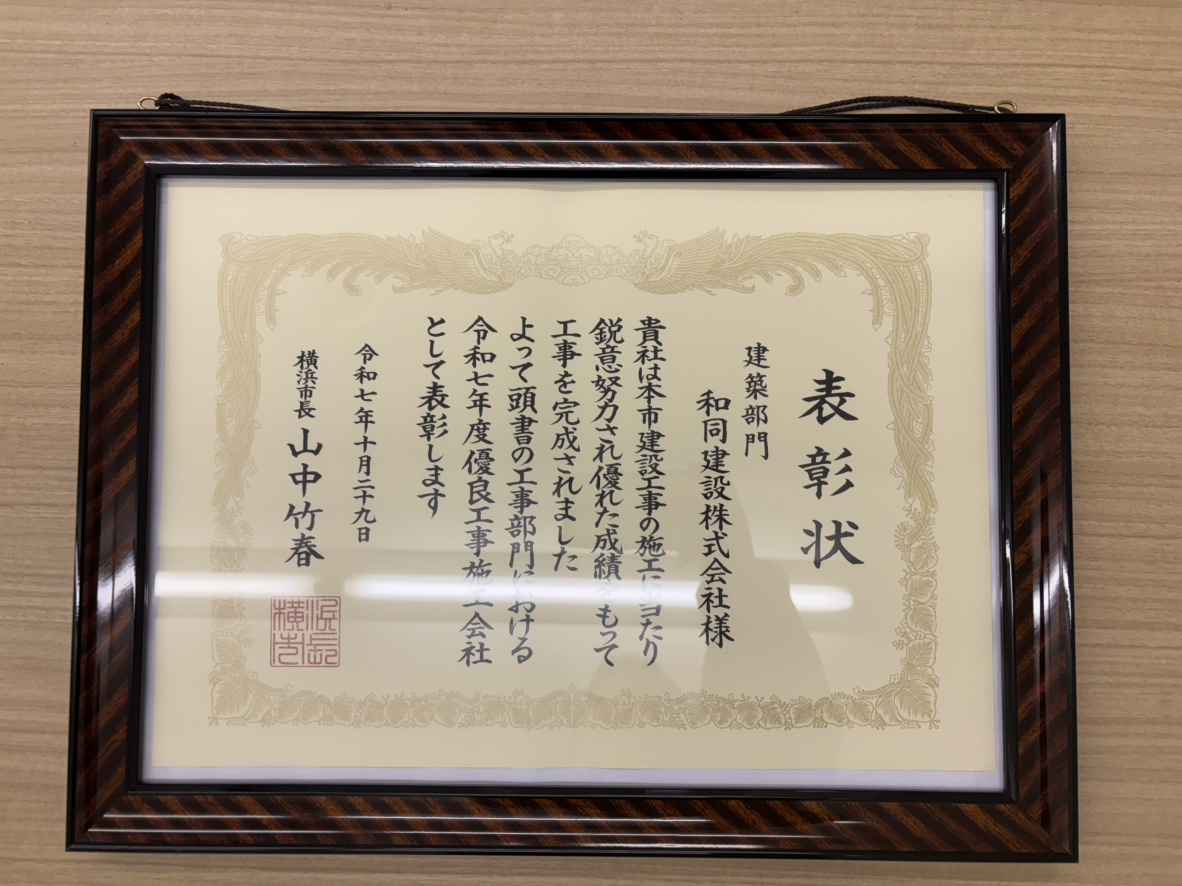 表彰状
建築部門
和同建設株式会社様
貴社は本市建設工事の施工に当たり
鋭意努力され優れた成績をもって
工事を完成されました
よって頭書の工事部門における
令和七年度優良工事施工会社
として表彰します
令和七年十月二十九日
横浜市長 山中竹春
横浜市長